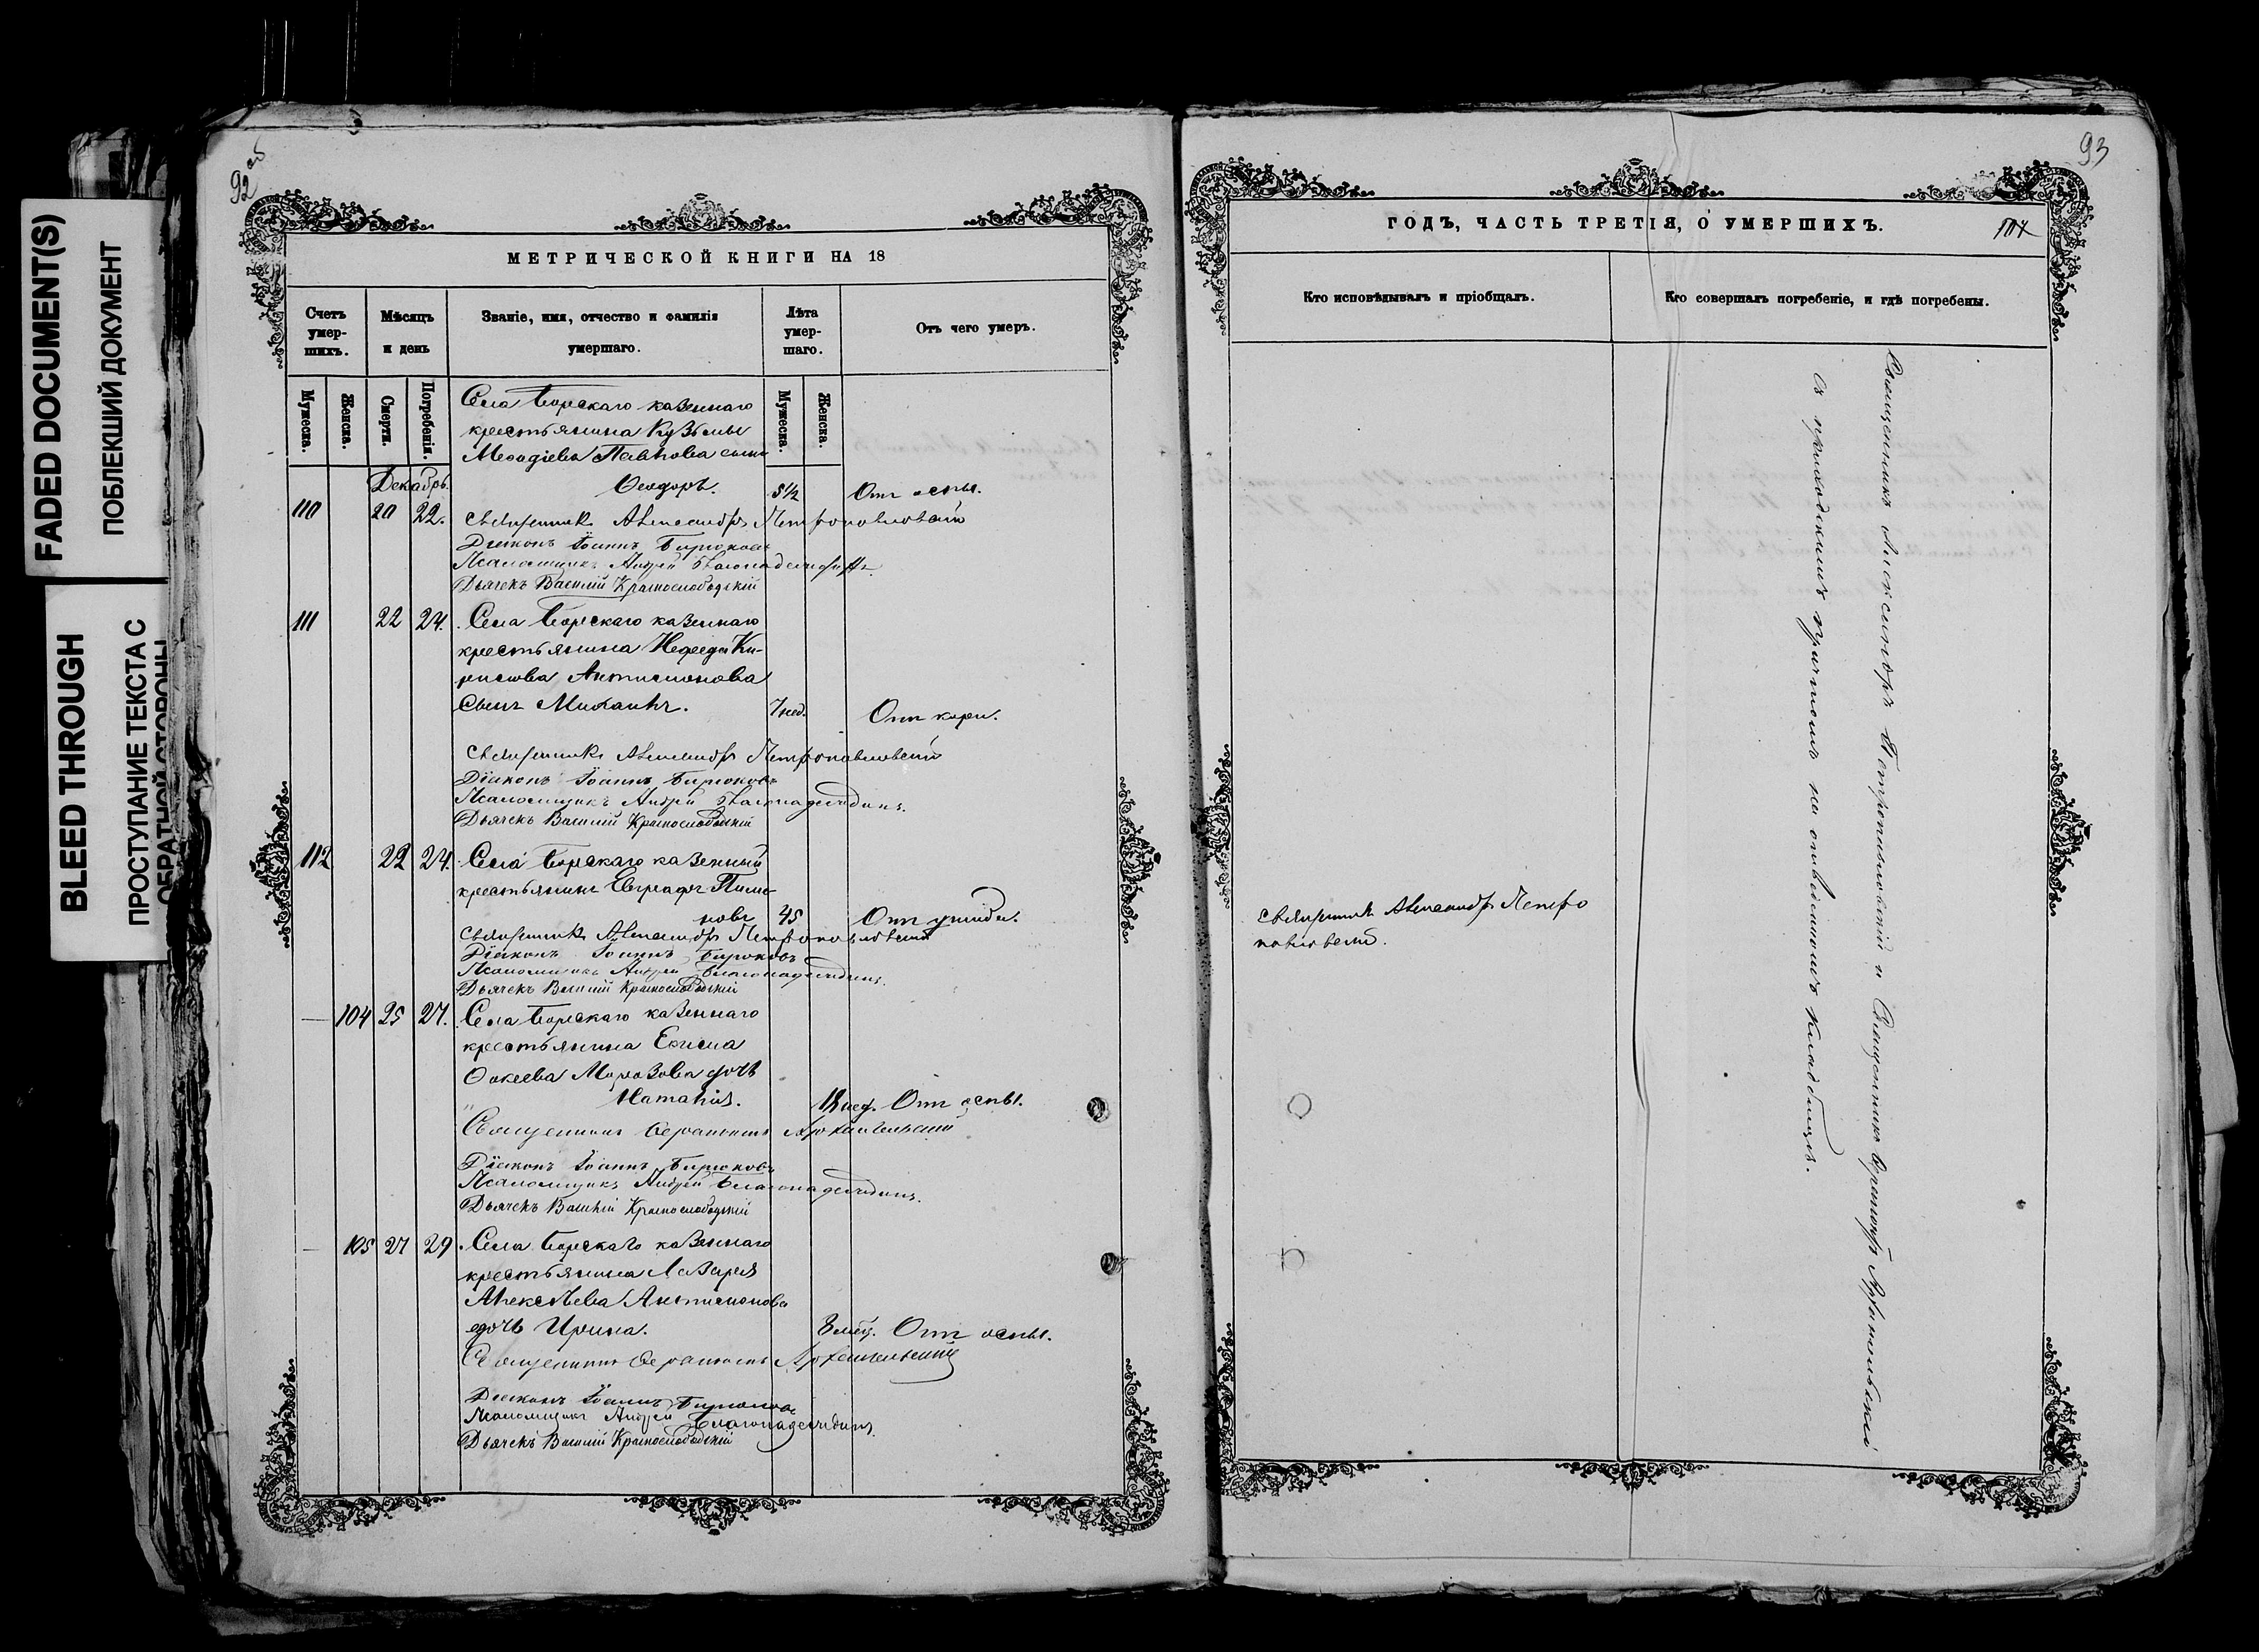 FADED DOCUMENT(S)
ПОБЛЕКШИЙ ДОКУМЕНТ
BLEED THROUGH
ПРОСТУПАНИЕ ТЕКСТА С
ОБРАТНОЙ СТОРОНЫ
92 об
МЕТРИЧЕСКОЙ КНИГИ НА 18
Счетъ умер-шихъ.
Мѣсяцъ и день
Званіе, имя, отчество и фамилія умершаго.
Лѣта умер-шаго.
Отъ чего умеръ.
Мужеска.
Женска.
Смерти.
Погребенія.
Мужеска.
Женска.
Села Борскаго казеннаго
крестьянина Кузьмы
Павлова сынъ
Декабрь.
Ѳеодоръ. 5½ Отъ оспы.
110 20 22.
Священникъ Александръ Петропавловскій
Діаконъ Іоаннъ Бирюковъ
Псаломщикъ Андрей Благонадеждинъ
Дьячекъ Василій Краснослободскій
111 22 24. Села Борскаго казеннаго
крестьянина Нефеда Ки-
рилова Антимонова
сынъ Михаилъ. 7 нед. Отъ кори.
Священникъ Александръ Петропавловскій
Діаконъ Іоаннъ Бирюковъ
Псаломщикъ Андрей Благонадеждинъ.
Дьячекъ Василій Краснослободскій
112 22 24. Села Борскаго казенный
крестьянинъ Евграфъ
новъ 45 Отъ
Священникъ Александръ Петропавловскій
Діаконъ Іоаннъ Бирюковъ
Псаломщикъ Андрей Благонадеждинъ.
Дьячекъ Василій Краснослободскій
— 104 25 27. Села Борскаго казеннаго
крестьянина
Морозова дочь
Наталія. нед. Отъ оспы.
Священникъ Архангельскій
Діаконъ Іоаннъ Бирюковъ
Псаломщикъ Андрей Благонадеждинъ.
Дьячекъ Василій Краснослободскій
— 105 27 29. Села Борскаго казеннаго
крестьянина Лазаря
Алексѣева Антимонова
дочь Ирина. Отъ оспы.
Священникъ Архангельскій
Діаконъ Іоаннъ Бирюковъ
Псаломщикъ Андрей Благонадеждинъ.
Дьячекъ Василій Краснослободскій
93
ГОДЪ, ЧАСТЬ ТРЕТІЯ, О УМЕРШИХЪ.
Кто исповѣдывалъ и пріобщалъ.
Кто совершалъ погребеніе, и гдѣ погребены.
Священникъ Александръ Петро
павловскій.
Священникъ Александръ Петропавловскій и Священникъ Архангельскій
съ приходскимъ причтомъ на отведенномъ кладбищѣ.